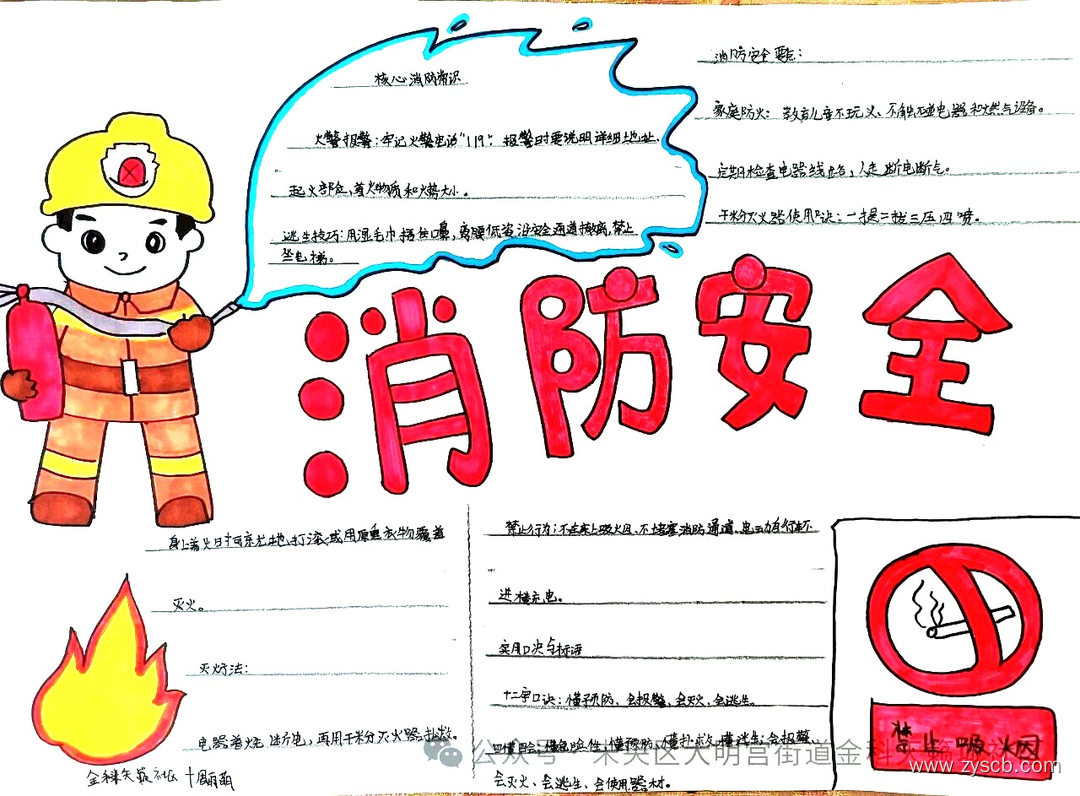 核心消防常识
火警报警：牢记火警电话"119"，报警时要说明详细地址、
起火部位、着火物质和火势大小。
逃生技巧：用湿毛巾捂住口鼻，弯腰低姿沿安全通道撤离，禁止
坐电梯。
消防安全要点：
家庭防火：教育儿童不玩火、不触碰电器和燃气设备。
定期检查电器线路，人走断电断气。
干粉灭火器使用口诀：一提二拔三压四喷。
消防安全
身上着火时可原地打滚或用厚重衣物覆盖
灭火。
灭火方法：
电器着火先断电，再用干粉灭火器扑救。
禁止行为：不在床上吸烟、不堵塞消防通道、电动自行车不
进楼充电。
实用口诀与标语
十二字口诀：懂预防、会报警、会灭火、会逃生。
四懂四会：懂危险性、懂预防、懂扑救、懂逃生；会报警
会灭火、会逃生、会使用器材。
禁止吸烟
公众号 未央区大明宫街道金科天籁社区
www.zyscb.com
金科天籁社区